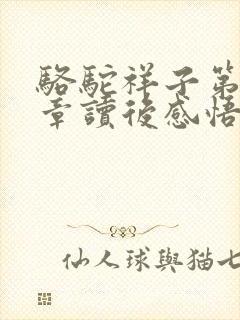 駱駝祥子第
章讀後感悟
仙人球與猫七